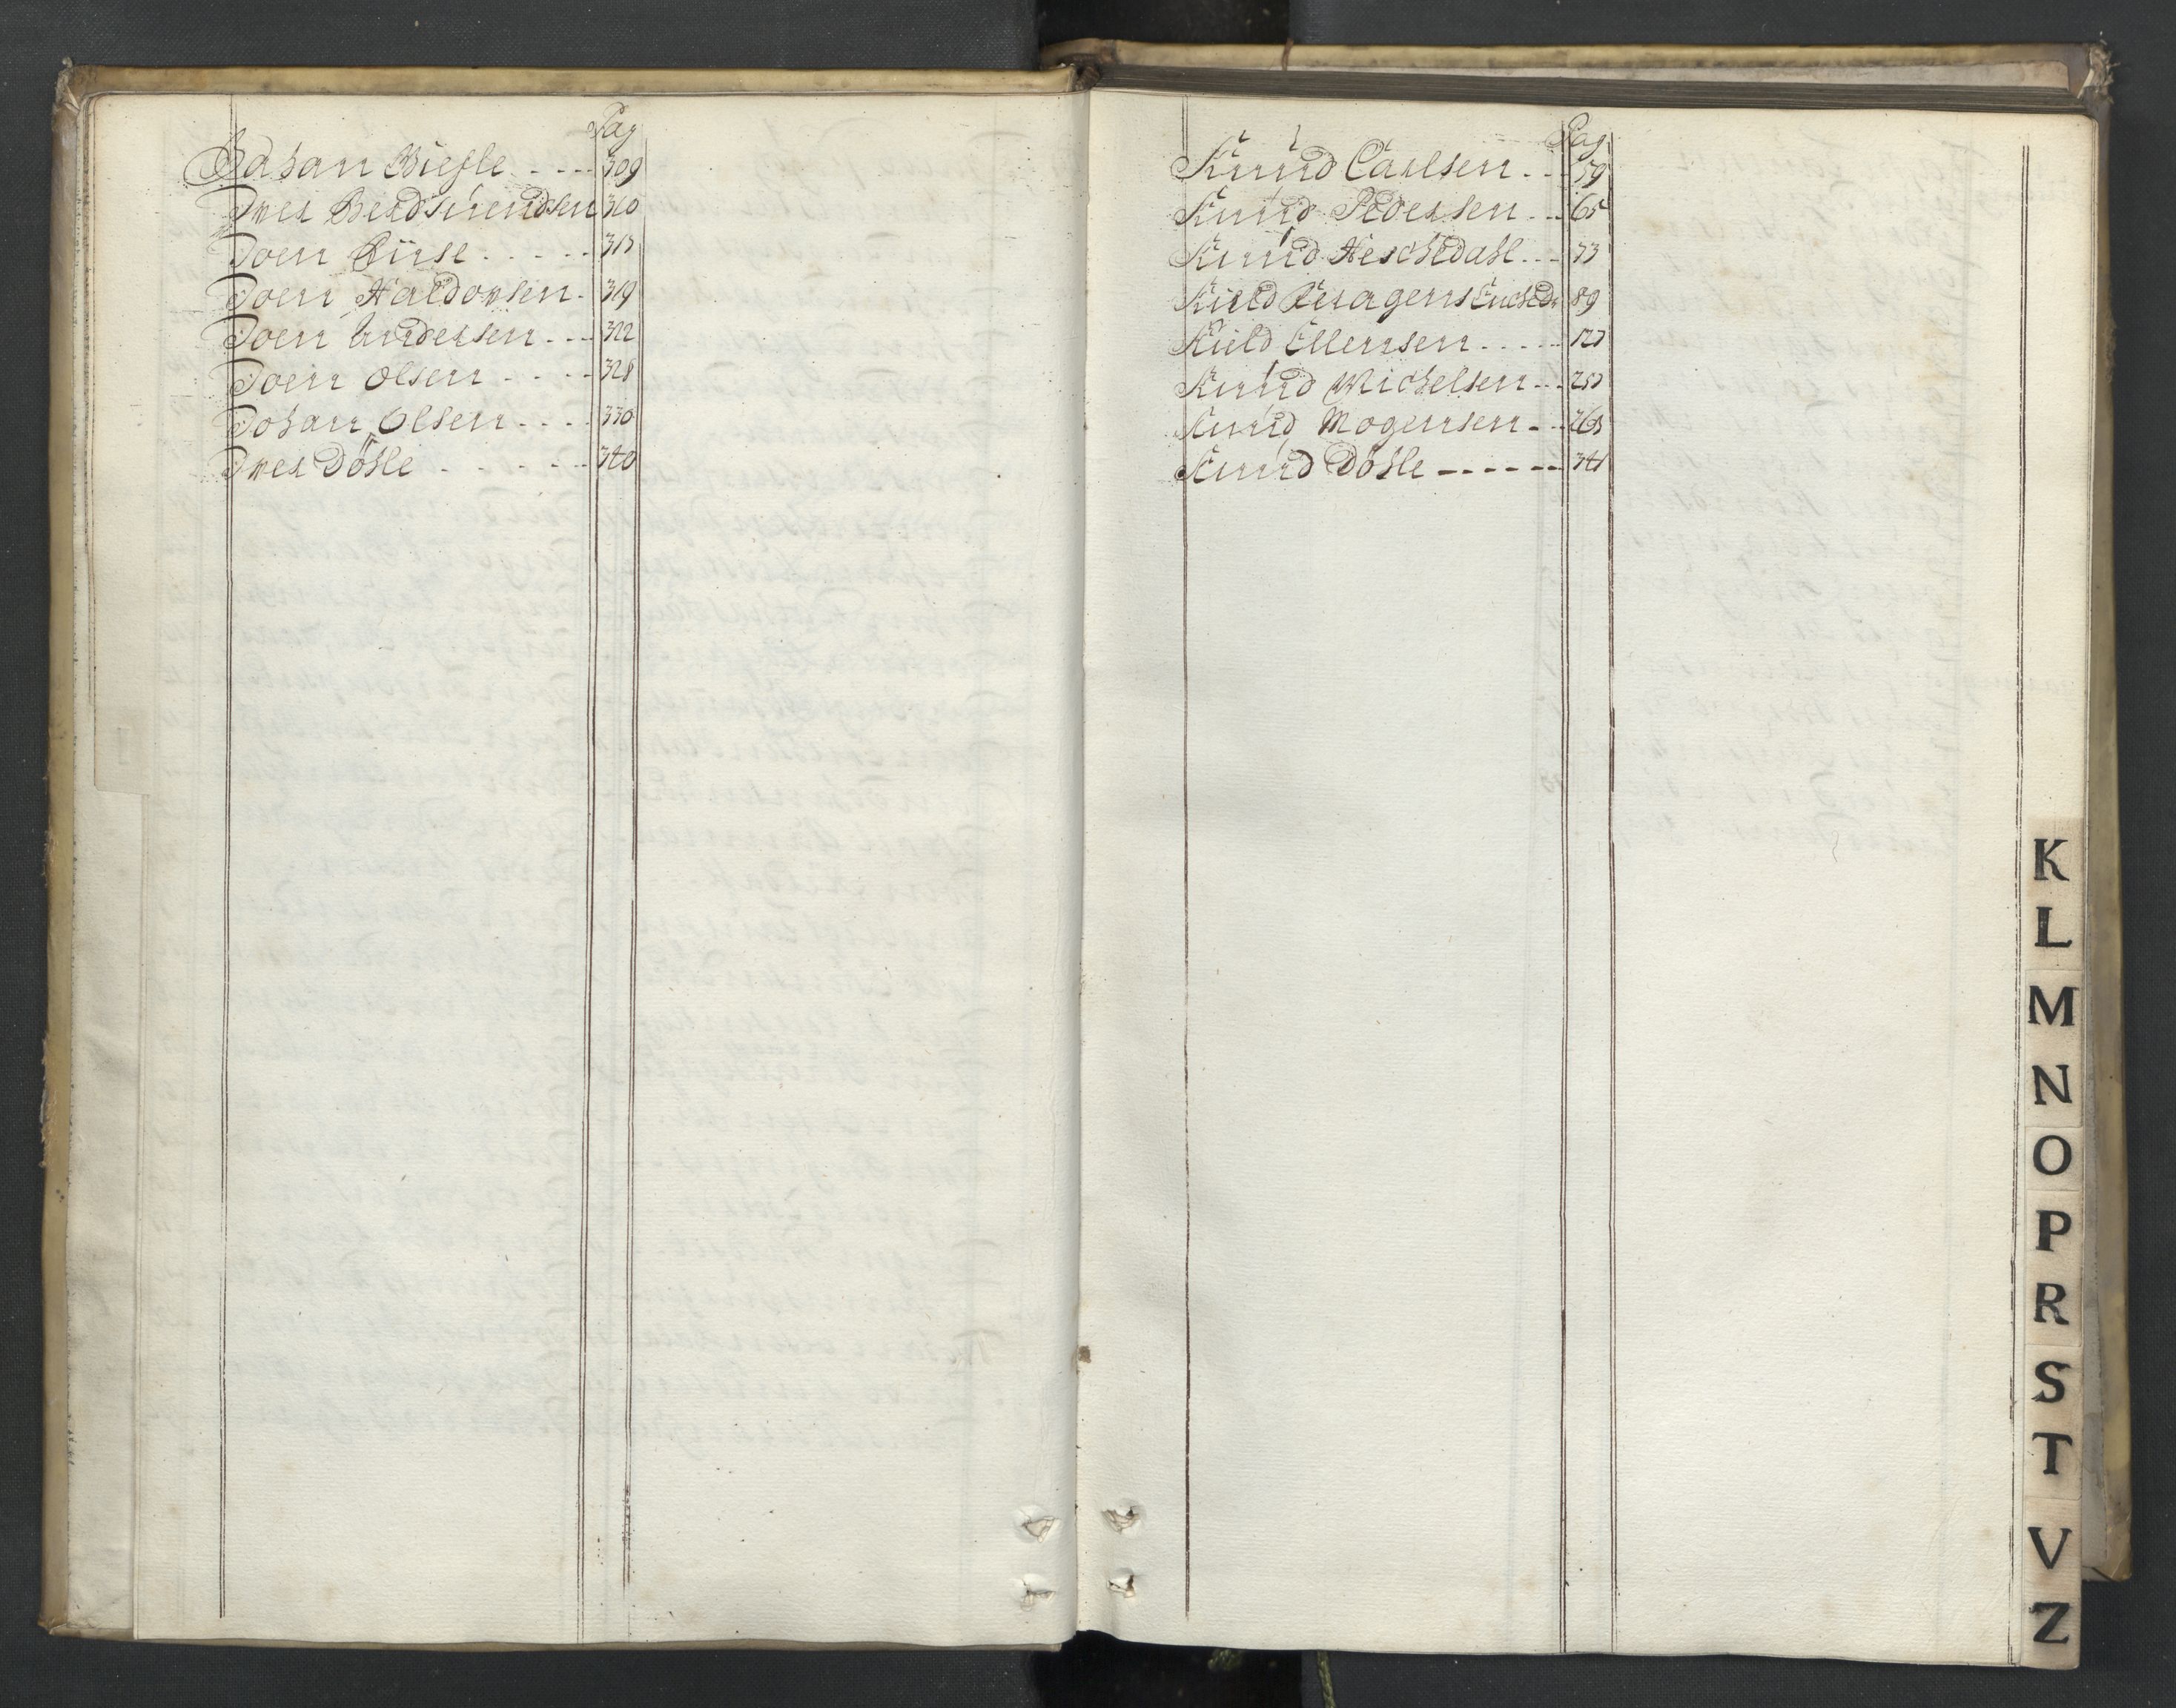 Pag
Johan Wiesle . . . . 309
Iver Berdsuendsen 310
Joen Büsle . . . . . 315
Joen Haldorsen . 319
Joen Andersen . . . 322
Joen Olsen . . . . 328
Johan Olsen . . . . 330
Iver Döhle . . . . . . 340
Pag
Knud Carlsen . . . 59
Knud Pedersen . . . 65
Knud Herschedahl . . . 73
Kield Ellensen . . . . . 127
Knud Michelsen . . . 257
Knud Mogensen . . . 265
Knud Döhle . . . . . . 341
K
L
M
N
O
P
R
S
T
V
Z